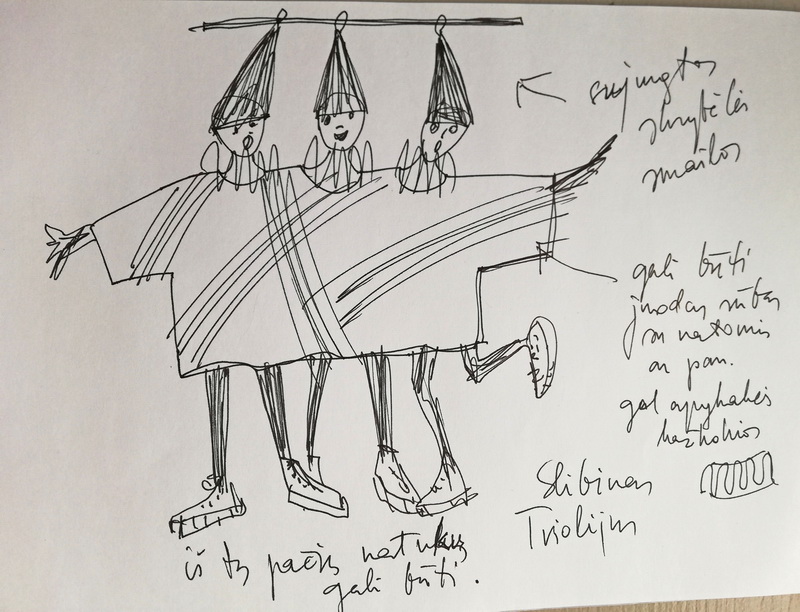 sujungtos
skrybėlės
smailos
gali būti
juodas rūbas
su natomis
ar pan.
gal apykaklės
kažkokios
Slibinas
Triolijus
iš tų pačių natukų
gali būti.